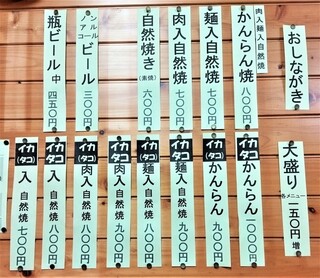 おしながき
肉入麺入自然焼
かんらん焼 八〇〇円
麺入自然焼 七〇〇円
肉入自然焼 七〇〇円
自然焼き(素焼) 六〇〇円
ノンアルコールビール 三〇〇円
瓶ビール 中 四五〇円
大盛り 各メニュー 一五〇円増
イカタコ かんらん 一〇〇〇円
イカ(タコ) かんらん 九〇〇円
イカタコ 麺入自然焼 九〇〇円
イカ(タコ) 麺入自然焼 八〇〇円
イカタコ 肉入自然焼 九〇〇円
イカ(タコ) 肉入自然焼 八〇〇円
イカタコ 入 自然焼 八〇〇円
イカ(タコ) 入 自然焼 七〇〇円